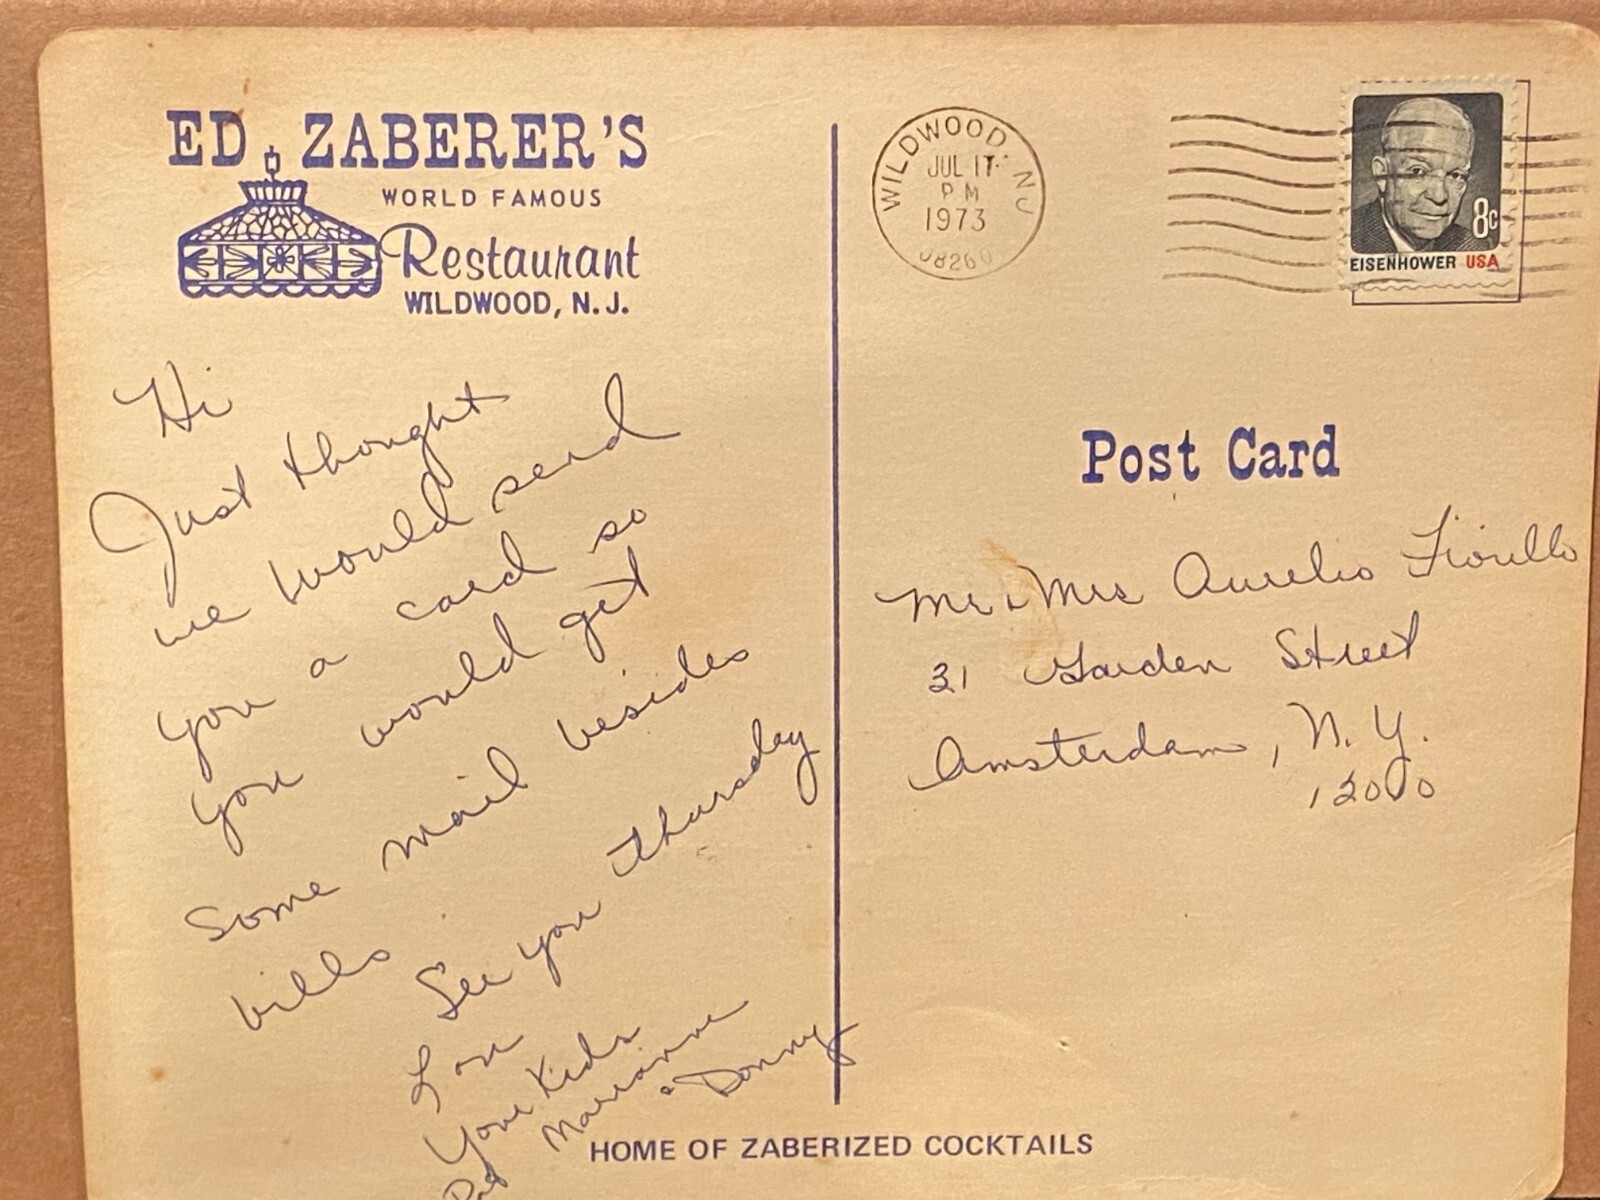 ED ZABERER'S
WORLD FAMOUS
Restaurant
WILDWOOD, N.J.
Hi
Just thought
we would send
you a card so
you would get
some mail besides
bills.
See you thursday
Love
Your Kids
Marianne
& Donny
WILDWOOD NJ
JUL 17
PM
1973
08260
8c
EISENHOWER USA
Post Card
Mr & Mrs Aurelio Fiorillo
31 Garden Street
Amsterdam, N.Y.
12010
HOME OF ZABERIZED COCKTAILS